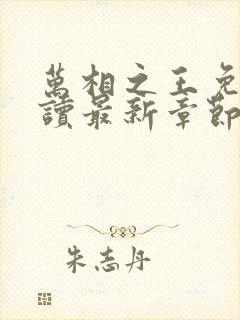 萬相之王免
讀最新章節
朱志丹